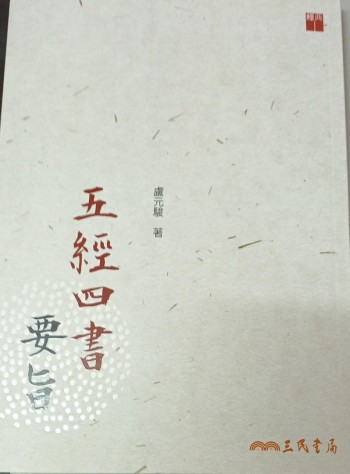 經典
盧元駿 著
五經四書
要旨
三民書局